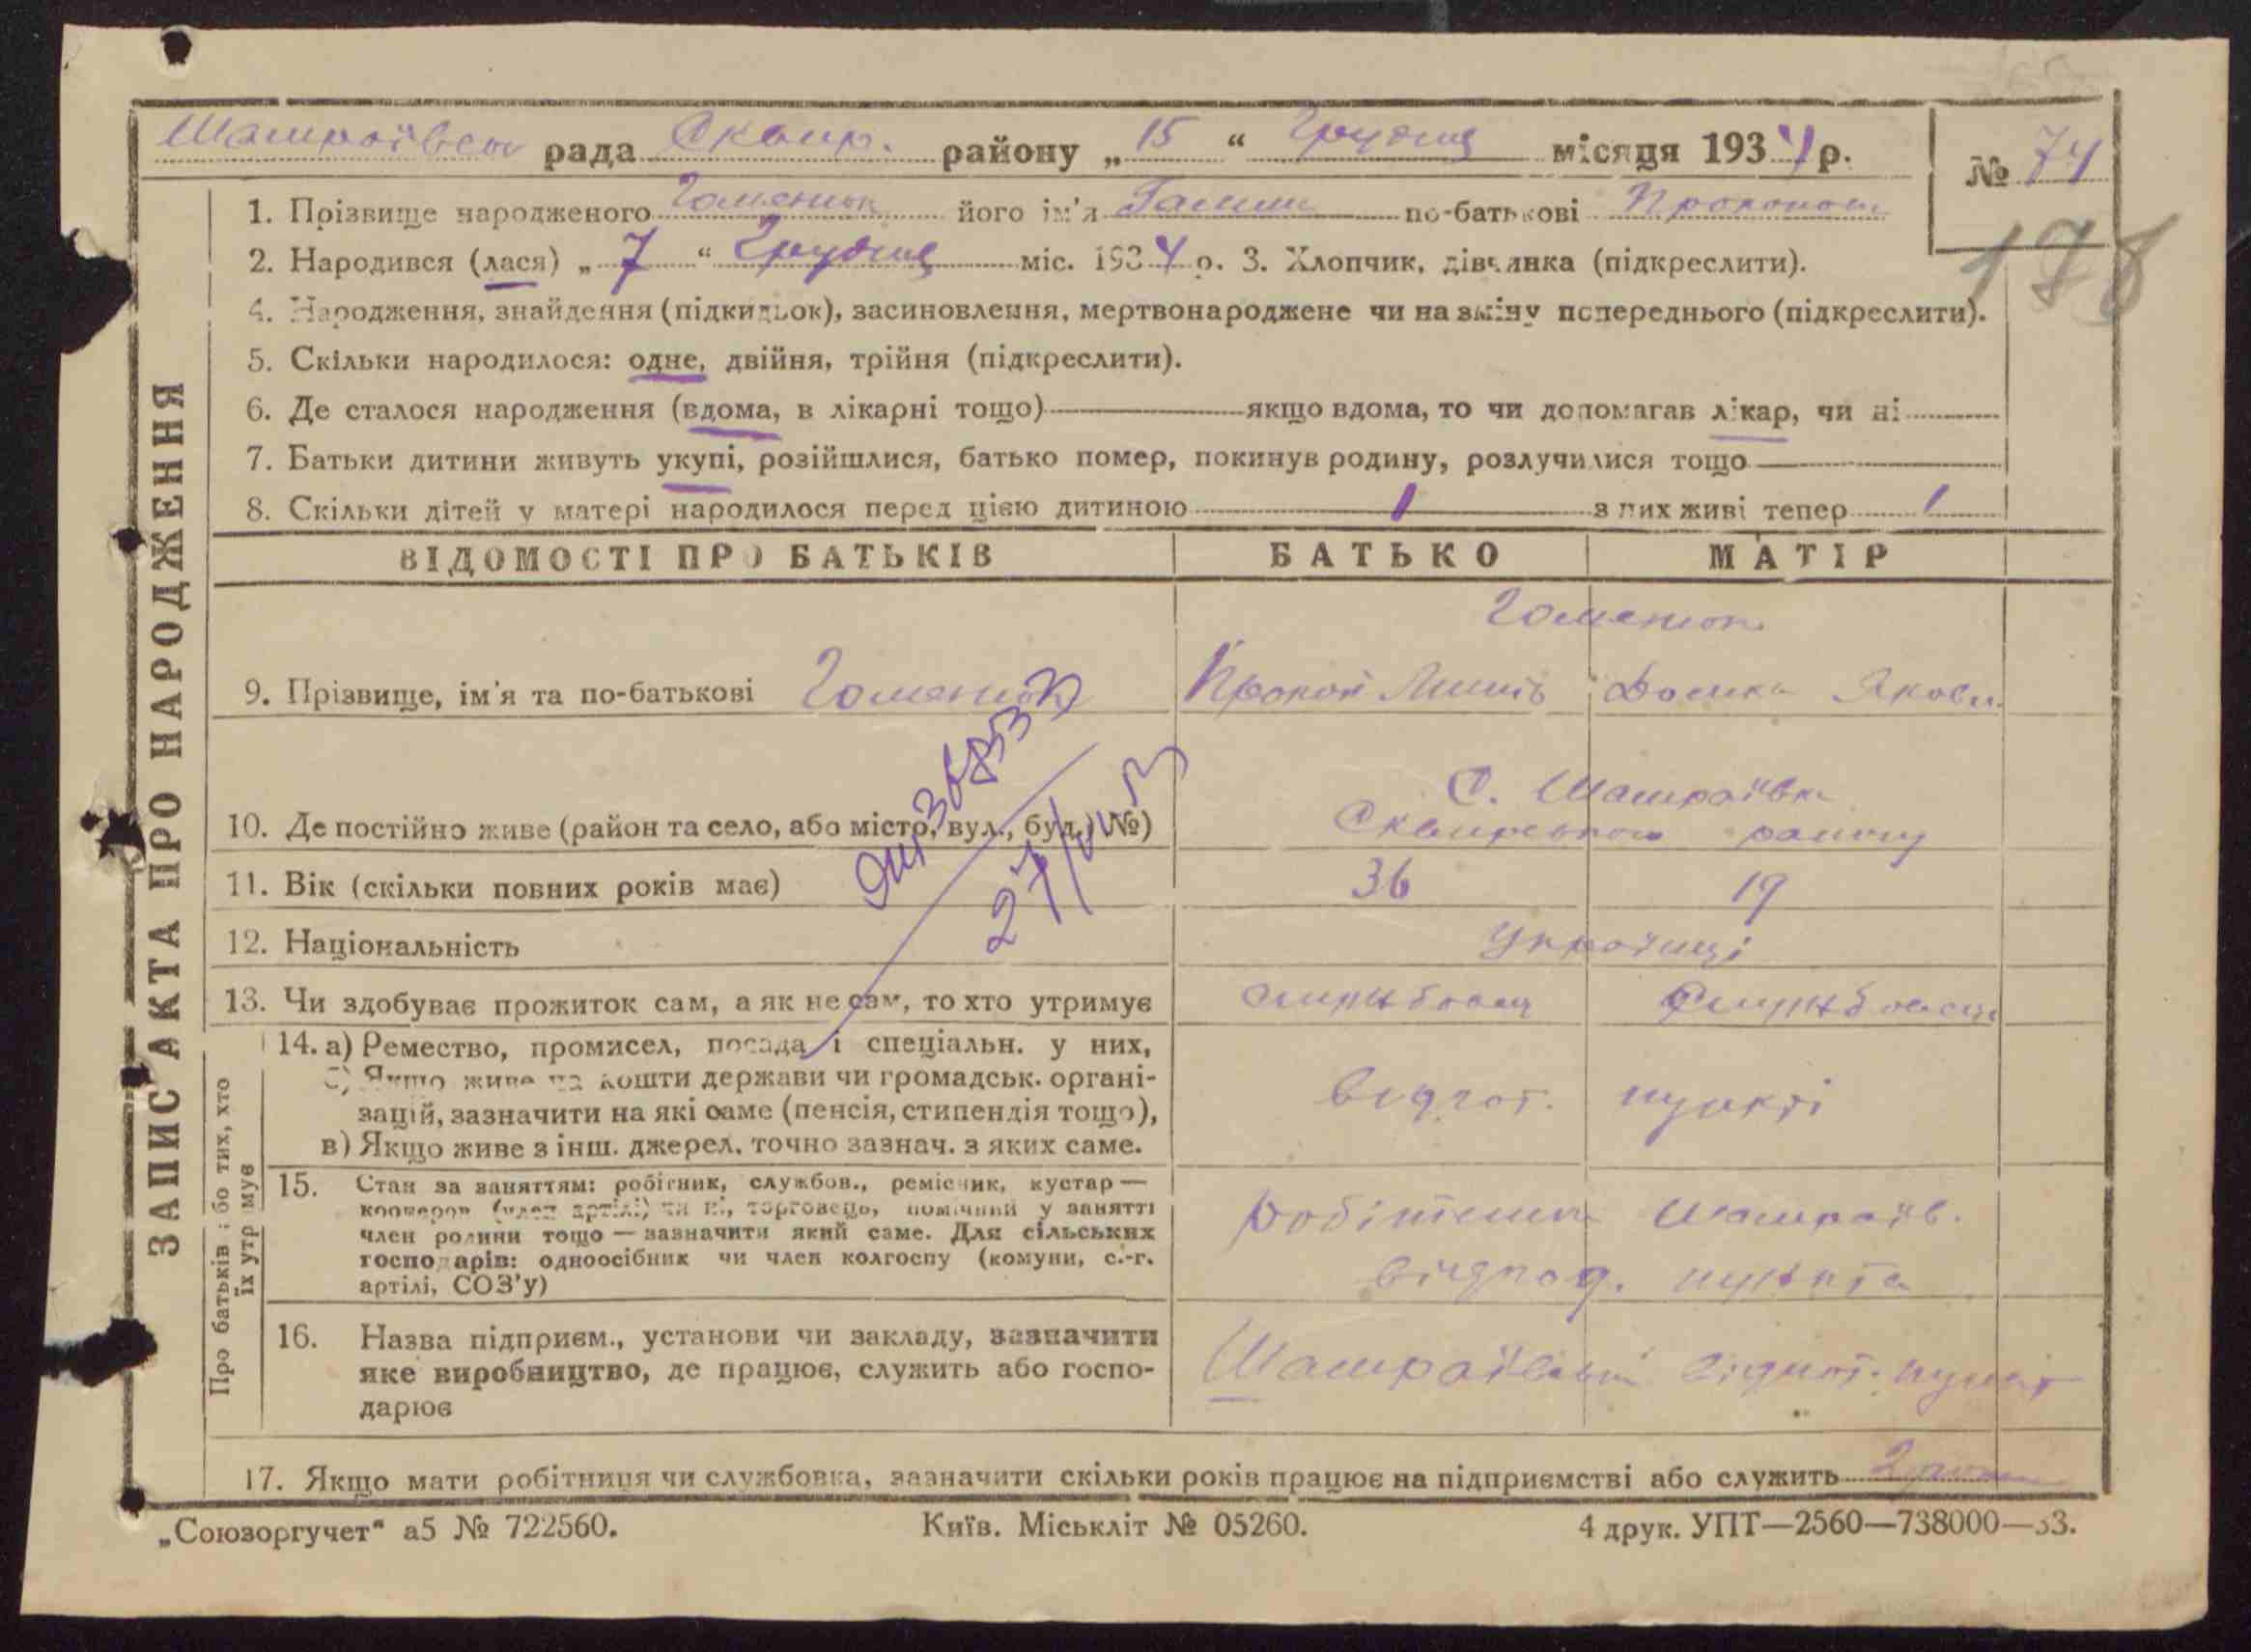 Шамраївська рада Сквир. району „ 15 “ Грудня місяця 1934 р.
№ 74
178
1. Прізвище народженого Гоменюк його ім'я Галина по-батькові
2. Народився (лася) „ 7 “ Грудня міс. 1934 р. 3. Хлопчик, дівчинка (підкреслити).
4. Народження, знайдення (підкидьок), засиновлення, мертвонароджене чи на зміну попереднього (підкреслити).
5. Скільки народилося: одне, двійня, трійня (підкреслити).
6. Де сталося народження (вдома, в лікарні тощо) якщо вдома, то чи допомагав лікар, чи ні
7. Батьки дитини живуть укупі, розійшлися, батько помер, покинув родину, розлучилися тощо
8. Скільки дітей у матері народилося перед цією дитиною 1 з них живі тепер 1
ЗАПИС АКТА ПРО НАРОДЖЕННЯ
ВІДОМОСТІ ПРО БАТЬКІВ БАТЬКО МАТІР
Гоменюк
9. Прізвище, ім'я та по-батькові Гоменюк Прокоп Якові
С. Шамраївка
10. Де постійно живе (район та село, або місто, вул., буд. №) Сквирського району
11. Вік (скільки повних років має) 36 19
12. Національність Українці
13. Чи здобуває прожиток сам, а як не сам, то хто утримує
Про батьків або тих, хто їх утримує
14. а) Ремество, промисел, посада і спеціальн. у них,
б) Якщо живе на кошти держави чи громадськ. органі-
зацій, зазначити на які саме (пенсія, стипендія тощо),
в) Якщо живе з інш. джерел, точно зазнач. з яких саме.
відгот. пункті
15. Стан за заняттям: робітник, службов., ремісник, кустар —
кооперов (член артілі) чи ні, торговець, помічний у занятті
член родини тощо — зазначити який саме. Для сільських
господарів: одноосібник чи член колгоспу (комуни, с.-г.
артілі, СОЗ'у)
Шамраїв.
пункта
16. Назва підприєм., установи чи закладу, зазначити
яке виробництво, де працює, служить або госпо-
дарює
Шамраївський відгот. пункт
17. Якщо мати робітниця чи службовка, зазначити скільки років працює на підприємстві або служить 2 роки
„Союзоргучет“ а5 № 722560. Київ. Міськліт № 05260. 4 друк. УПТ—2560—738000—33.